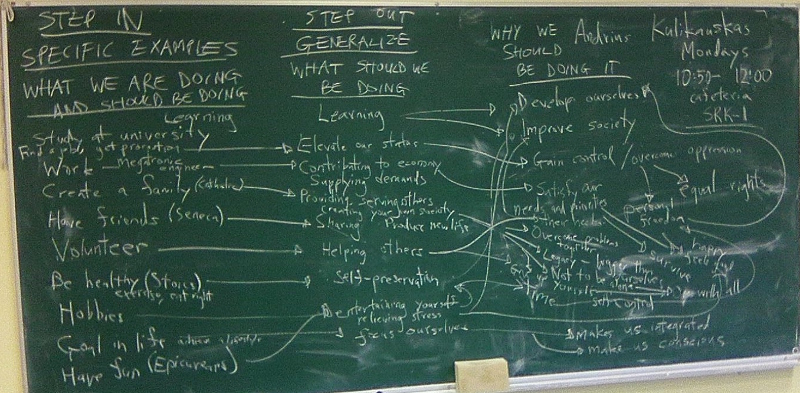 STEP IN
SPECIFIC EXAMPLES
WHAT WE ARE DOING
AND SHOULD BE DOING
Learning
Study at university
Find a job, get promotion
Work - engineer
Create a family (Catholic)
Have friends (Seneca)
Volunteer
Be healthy (Stoics)
exercise, eat right
Hobbies
Goal in life
Have fun (Epicureans)
STEP OUT
GENERALIZE
WHAT SHOULD WE
BE DOING
Learning
Elevate our status
Contributing to economy
Supplying demands
Providing, serving others
creating your own society
Sharing Produce new life
Helping others
Self-preservation
entertaining yourself
relieving stress
focus ourselves
WHY WE
SHOULD
BE DOING IT
Andrius Kulikauskas
Mondays
10:50- 12:00
cafeteria
SRK-1
Develop ourselves
Improve society
Gain control / overcome oppression
equal rights
Satisfy our
needs and priorities
personal
freedom
Other needs
Overcome problems
Legacy -
happy
survive
Not to be
Time
self control
with all
makes us integrated
make us conscious